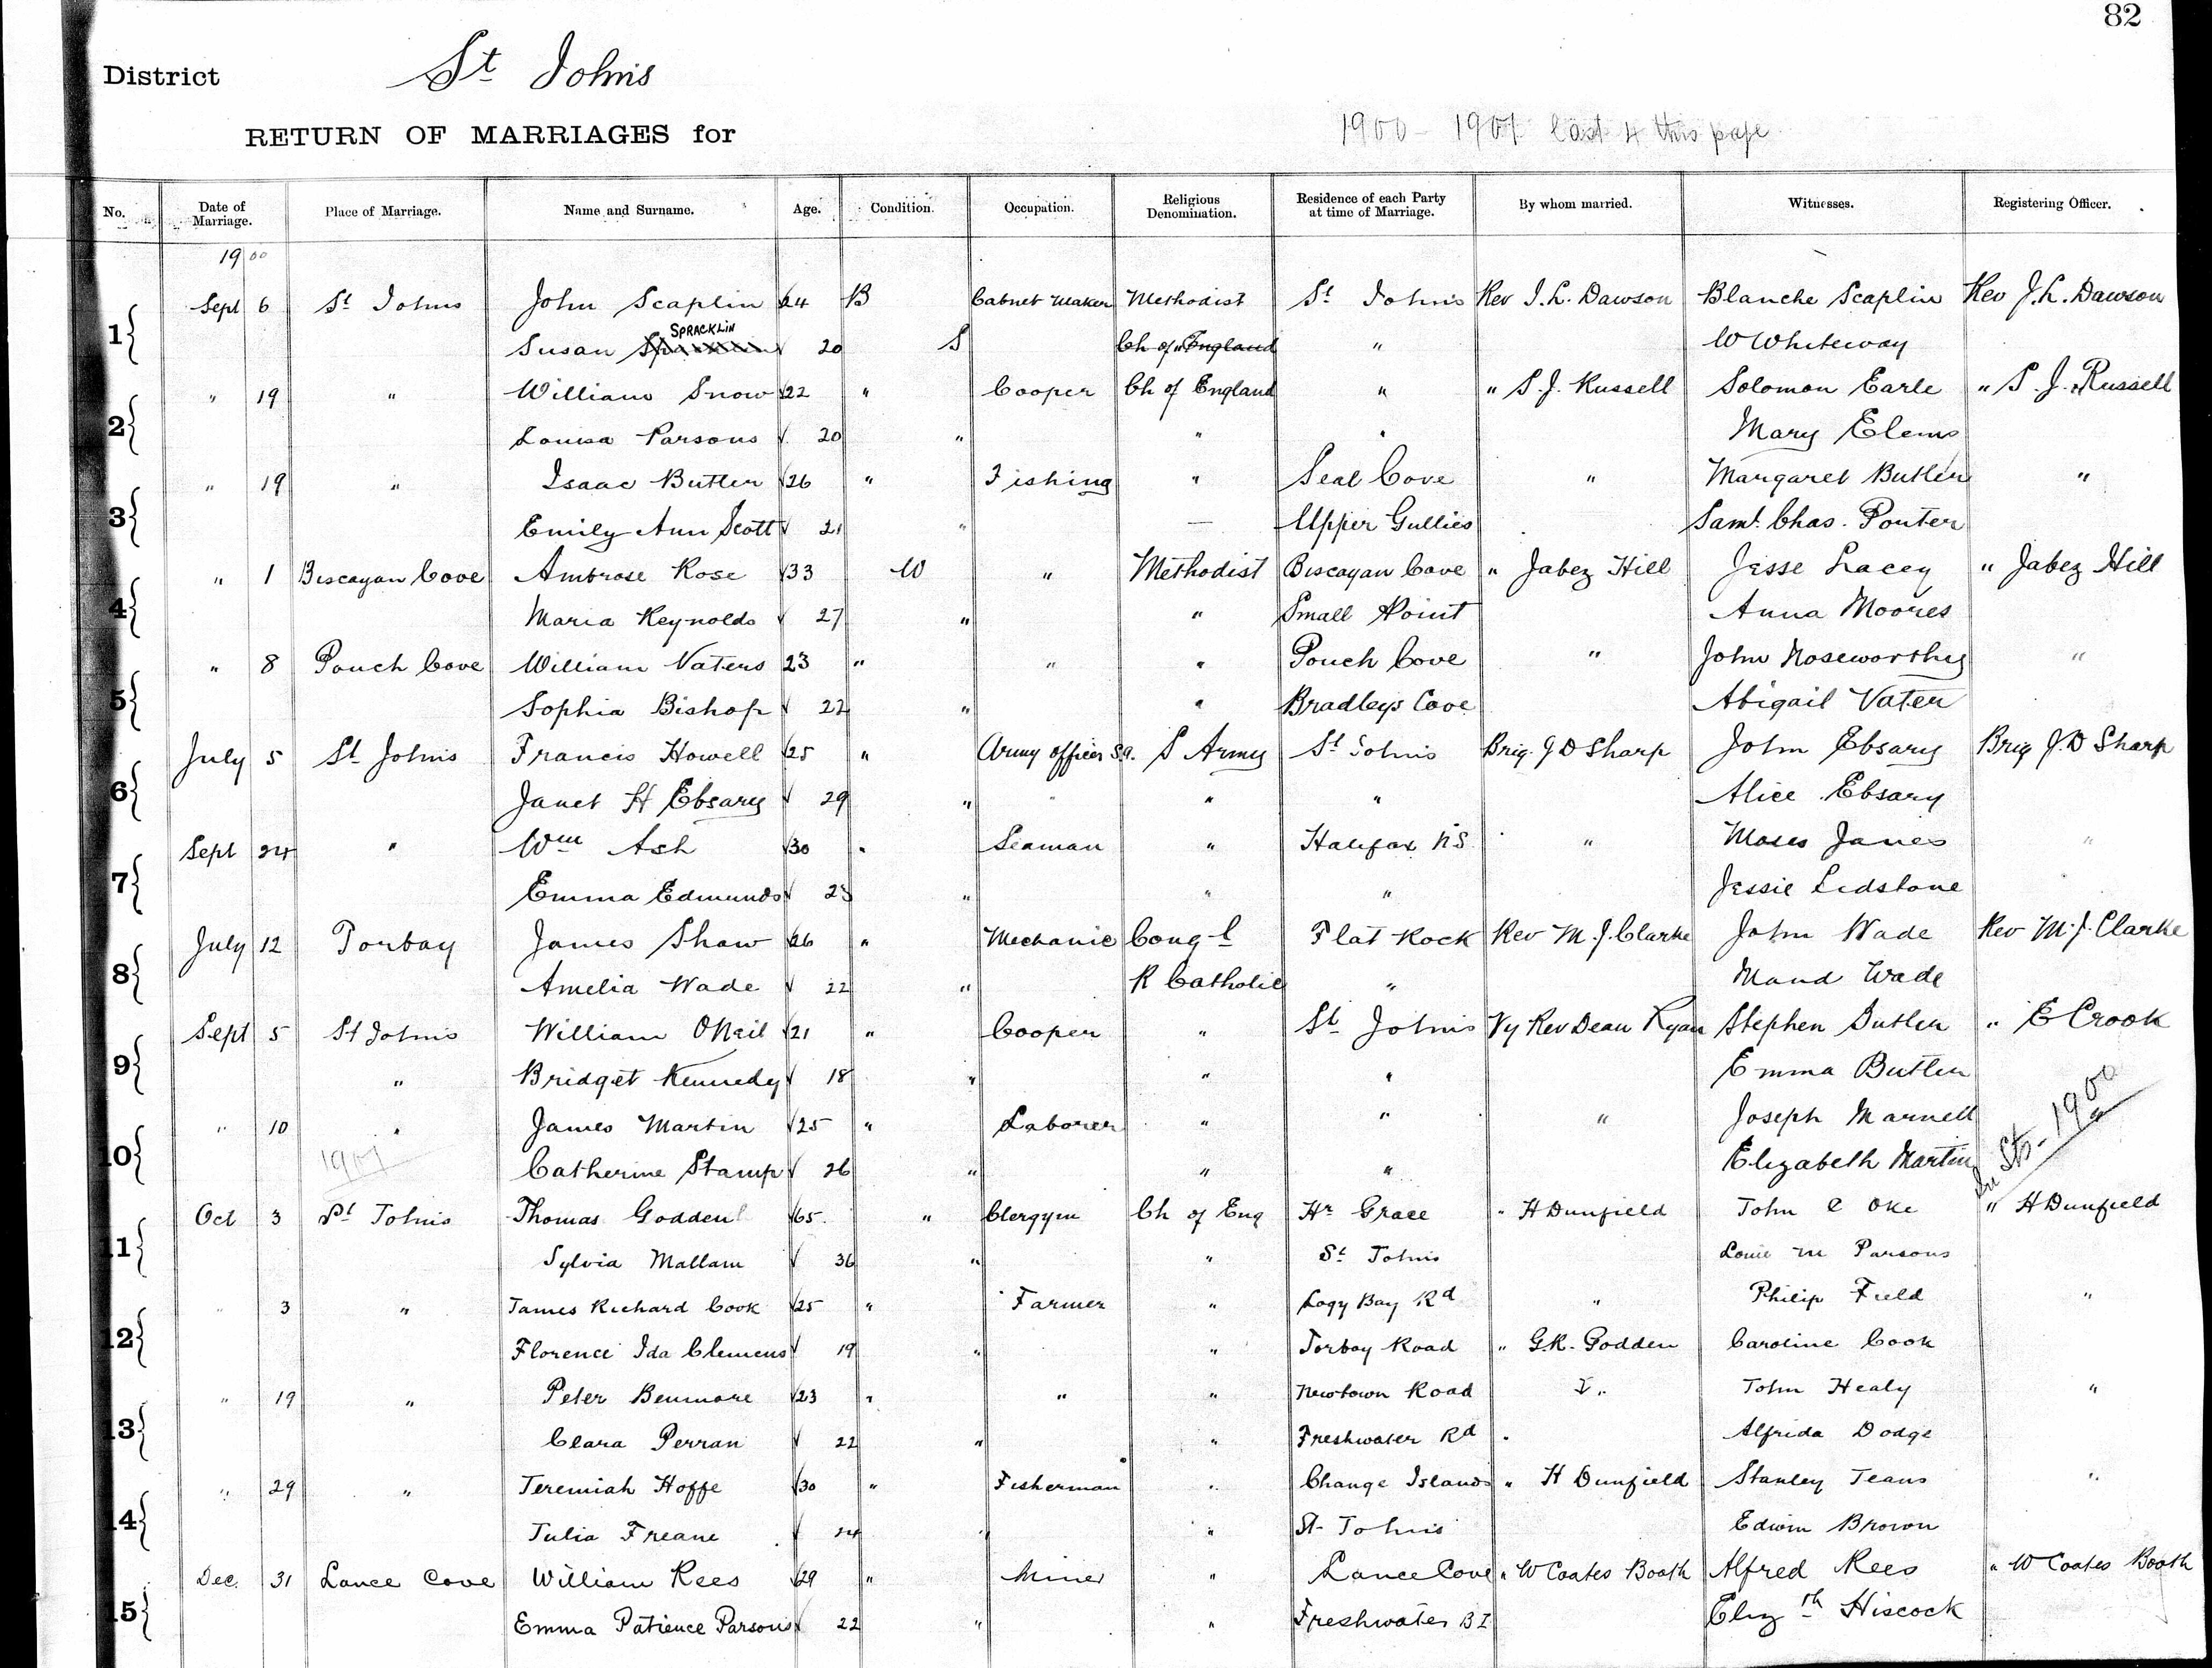 82
District St Johns
RETURN OF MARRIAGES for 1900 - 1901 last 4 this page
No. Date of Marriage. Place of Marriage. Name and Surname. Age. Condition. Occupation. Religious Denomination. Residence of each Party at time of Marriage. By whom married. Witnesses. Registering Officer.
1900
1 Sept 6 St Johns John Scaplin 24 B Cabnet Maker Methodist St Johns Rev J.L. Dawson Blanche Scaplin Rev J.L. Dawson
Susan SPRACKLIN 20 S Ch of England " W Whiteway
2 " 19 " William Snow 22 " Cooper Ch of England " " S.J. Russell Solomon Earle " S.J. Russell
Louisa Parsons 20 " " " Mary Elems
3 " 19 " Isaac Butler 26 " Fishing " Seal Cove " Margaret Butler "
Emily Ann Scott 21 " — Upper Gullies Saml. Chas. Porter
4 " 1 Biscayan Cove Ambrose Rose 33 W " Methodist Biscayan Cove " Jabez Hill Jesse Lacey " Jabez Hill
Maria Reynolds 27 " " Small Point Anna Moores
5 " 8 Pouch Cove William Vaters 23 " " " Pouch Cove " John Noseworthy "
Sophia Bishop 22 " " Bradleys Cove Abigail Vater
6 July 5 St Johns Francis Howell 25 " Army officer S.A. S Army St Johns Brig. J D Sharp John Ebsary Brig J.D Sharp
Janet H Ebsary 29 " " " " Alice Ebsary
7 Sept 24 " Wm Ash 30 " Seaman " Halifax N.S. " Moses Janes "
Emma Edmunds 23 " " " Jessie Lidstone
8 July 12 Torbay James Shaw 26 " Mechanic Cong-l Flat Rock Rev M.J. Clarke John Wade Rev M.J. Clarke
Amelia Wade 22 " R Catholic " Maud Wade
9 Sept 5 St Johns William ONeil 21 " Cooper " St Johns Vy Rev Dean Ryan Stephen Butler " E Crook
" Bridget Kennedy 18 " " " Emma Butler
10 " 10 " James Martin 25 " Laborer " " " Joseph Marnell "
1901 Catherine Stamp 26 " " " Elizabeth Martin
11 Oct 3 St Johns Thomas Godden 65 " Clergym Ch of Eng Hr Grace " H Dunfield John C Oke " H Dunfield
Sylvia Mallam 36 " " St Johns Louie M Parsons
12 " 3 " James Richard Cook 25 " Farmer " Logy Bay Rd " Philip Field "
Florence Ida Clemens 19 " " Torbay Road " G.R. Godden Caroline Cook
13 " 19 " Peter Benmore 23 " " " Newtown Road " John Healy "
Clara Perran 22 " " Freshwater Rd " Alfrida Dodge
14 " 29 " Jeremiah Hoffe 30 " Fisherman " Change Islands " H Dunfield Stanley Jeans "
Julia Freane 24 " " St Johns Edwin Brown
15 Dec. 31 Lance Cove William Rees 29 " Miner " Lance Cove " W Coates Booth Alfred Rees " W Coates Booth
Emma Patience Parsons 22 " " Freshwater B I Elizth Hiscock